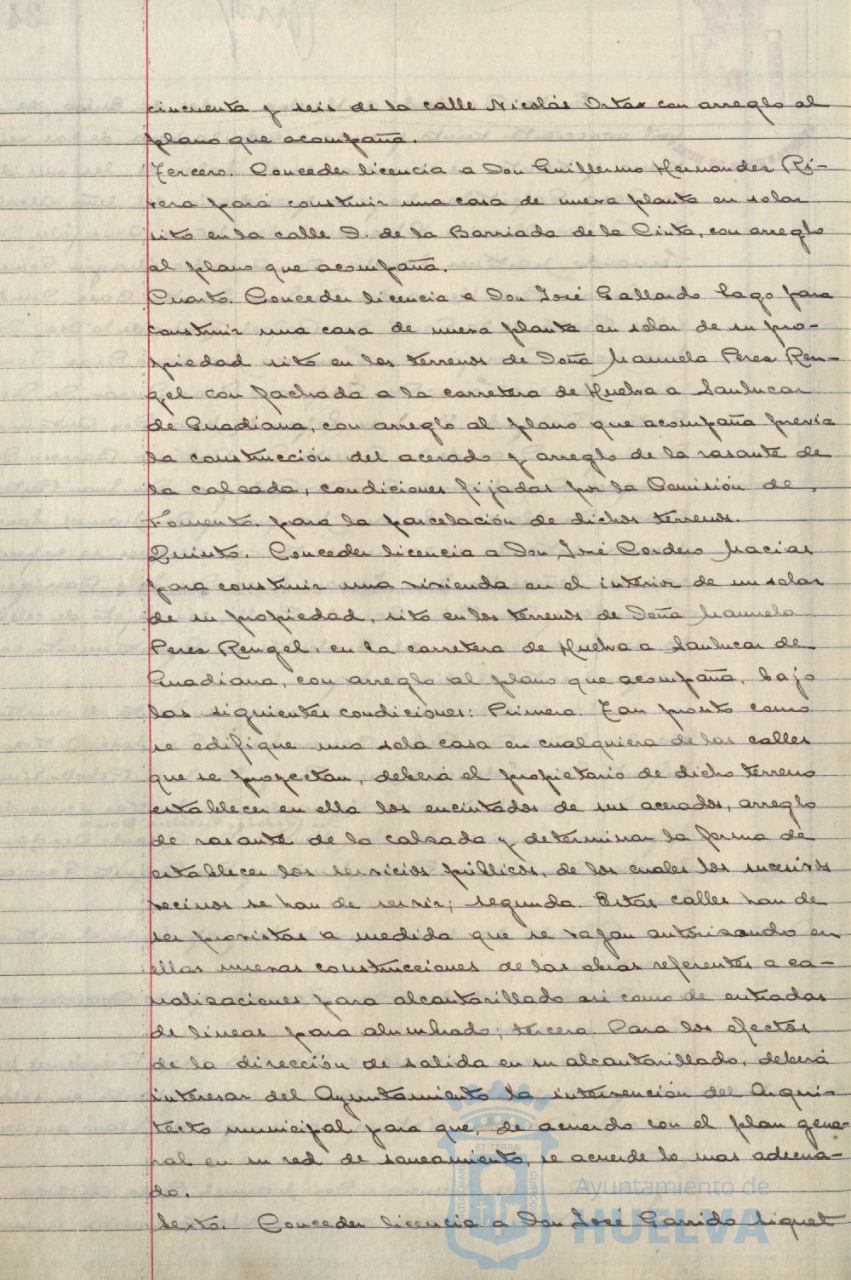 cincuenta y seis de la calle Nicolás Orta con arreglo al
plano que acompaña.
Tercero. Conceder licencia a Don Guillermo Hernandez Ri-
vera para construir una casa de nueva planta en solar
sito en la calle D. de la Barriada de la Cinta, con arreglo
al plano que acompaña.
Cuarto. Conceder licencia a Don José Gallardo Lago para
construir una casa de nueva planta en solar de su pro-
piedad sito en los terrenos de Doña Manuela Perez Ren-
gel con fachada a la carretera de Huelva a Sanlucar
de Guadiana, con arreglo al plano que acompaña previa
la construcción del acerado y arreglo de la rasante de
la calzada, condiciones fijadas por la Comisión de
Fomento para la parcelación de dichos terrenos.
Quinto. Conceder licencia a Don José Cordero Macias
para construir una vivienda en el interior de un solar
de su propiedad, sito en los terrenos de Doña Manuela
Perez Rengel, en la carretera de Huelva a Sanlucar de
Guadiana, con arreglo al plano que acompaña, bajo
las siguientes condiciones: Primera. Tan pronto como
se edifique una sola casa en cualquiera de las calles
que se proyectan, deberá el propietario de dicho terreno
establecer en ella los encintados de sus acerados, arreglo
de rasante de la calzada y determinar la forma de
establecer los servicios públicos, de los cuales los sucesivos
vecinos se han de servir; segunda. Estas calles han de
ser provistas a medida que se vayan autorizando en
ellas nuevas construcciones de las obras referentes a ca-
nalizaciones para alcantarillado asi como de entradas
de lineas para alumbrado; tercera. Para los efectos
de la dirección de salida en su alcantarillado, deberá
interesar del Ayuntamiento la intervención del Arqui-
tecto municipal para que, de acuerdo con el plan gene-
ral en su red de saneamiento, se acuerde lo mas adecua-
do.
Sexto. Conceder licencia a Don José Garrido Miquet
Ayuntamiento de
HUELVA